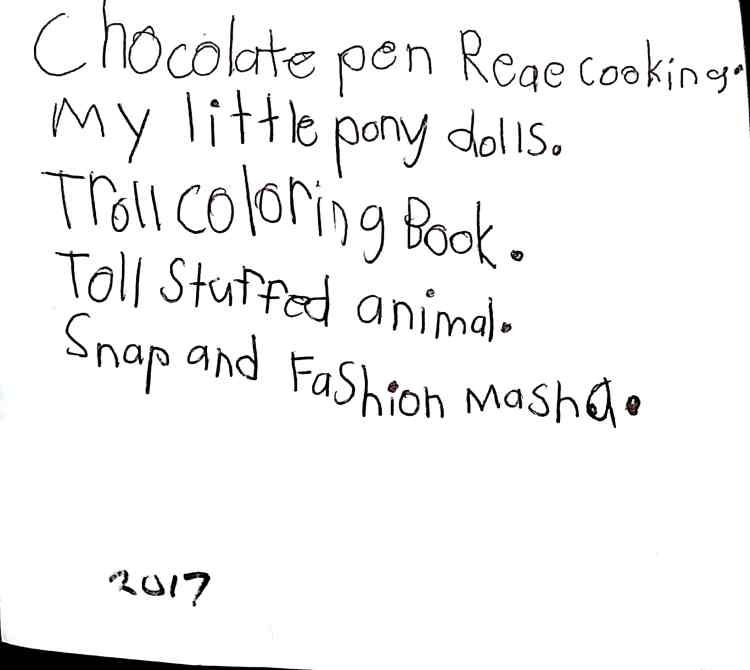 Chocolate pen Reae cooking.
My little pony dolls.
Troll coloring Book.
Toll Stuffed animal.
Snap and Fashion Masha.
2017